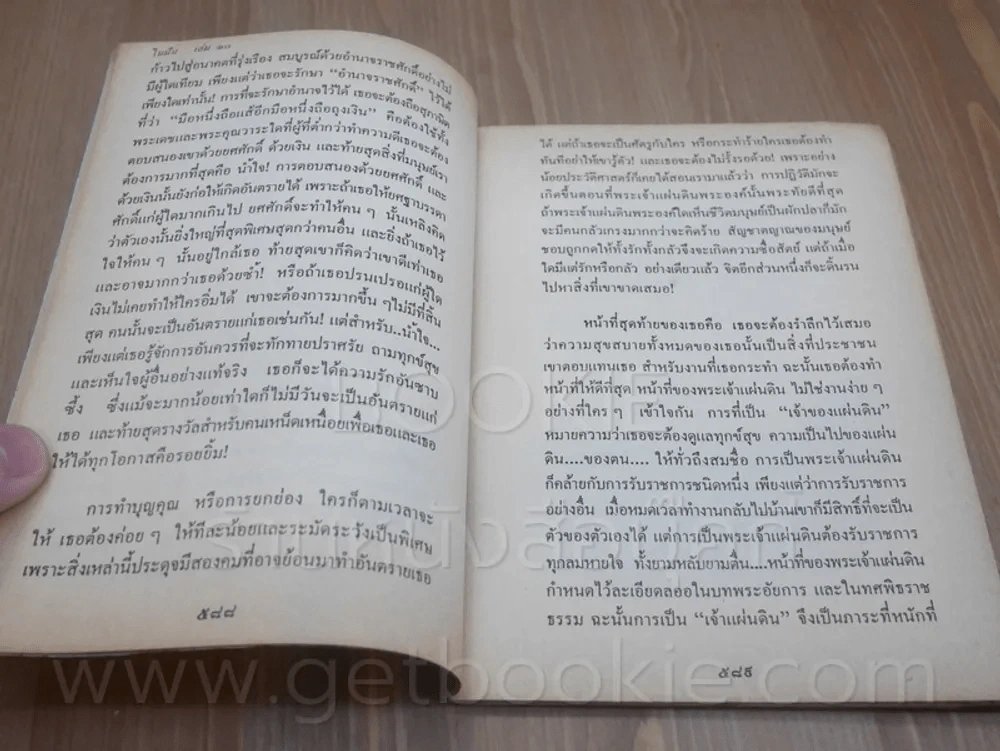 ในฝัน เล่ม ๑๓
ก้าวไปสู่อนาคตที่รุ่งเรือง สมบูรณ์ด้วยอำนาจราชศักดิ์อย่างไม่
มีผู้ใดเทียม เพียงแต่ว่าเธอจะรักษา “อำนาจราชศักดิ์” ไว้ได้
เพียงใดเท่านั้น! การที่จะรักษาอำนาจไว้ได้ เธอจะต้องถือสุภาษิต
ที่ว่า “มือหนึ่งถือแส้อีกมือหนึ่งถือถุงเงิน” คือต้องใช้ทั้ง
พระเดชและพระคุณวาระใดที่ผู้ที่ต่ำกว่าทำความดีเธอจะต้อง
ตอบสนองเขาด้วยยศศักดิ์ ด้วยเงิน และท้ายสุดสิ่งที่มนุษย์เรา
ต้องการมากที่สุดคือ น้ำใจ! การตอบสนองด้วยยศศักดิ์ และ
ด้วยเงินนั้นยังก่อให้เกิดอันตรายได้ เพราะถ้าเธอให้ยศฐาบรรดา
ศักดิ์แก่ผู้ใดมากเกินไป ยศศักดิ์จะทำให้คน ๆ นั้นเหลิงคิด
ว่าตัวเองนั้นยิ่งใหญ่ที่สุดพิเศษสุดกว่าคนอื่น และยิ่งถ้าเธอไว้
ใจให้คน ๆ นั้นอยู่ใกล้เธอ ท้ายสุดเขาก็คิดว่าเขาดีเท่าเธอ
และอาจมากกว่าเธอด้วยซ้ำ! หรือถ้าเธอปรนเปรอแก่ผู้ใด
เงินไม่เคยทำให้ใครอิ่มได้ เขาจะต้องการมากขึ้น ๆ ไม่มีที่สิ้น
สุด คนนั้นจะเป็นอันตรายแก่เธอเช่นกัน! แต่สำหรับ..น้ำใจ...
เพียงแต่เธอรู้จักการอันควรที่จะทักทายปราศรัย ถามทุกข์สุข
และเห็นใจผู้อื่นอย่างแท้จริง เธอก็จะได้ความรักอันซาบ
ซึ้ง ซึ่งแม้จะมากน้อยเท่าใดก็ไม่มีวันจะเป็นอันตรายแก่
เธอ และท้ายสุดรางวัลสำหรับคนเหน็ดเหนื่อยเพื่อเธอและเธอ
ให้ได้ทุกโอกาสคือรอยยิ้ม!
การทำบุญคุณ หรือการยกย่อง ใครก็ตามเวลาจะ
ให้ เธอต้องค่อย ๆ ให้ทีละน้อยและระมัดระวังเป็นพิเศษ
เพราะสิ่งเหล่านี้ประดุจมีสองคมที่อาจย้อนมาทำอันตรายเธอ
๕๘๘
ได้ แต่ถ้าเธอจะเป็นศัตรูกับใคร หรือกระทำร้ายใครเธอต้องทำ
ทันทีอย่าให้เขารู้ตัว! และเธอจะต้องไม่รั้งรอด้วย! เพราะอย่าง
น้อยประวัติศาสตร์ก็เคยได้สอนเรามาแล้วว่า การปฏิวัติมักจะ
เกิดขึ้นตอนที่พระเจ้าแผ่นดินพระองค์นั้นพระทัยดีที่สุด
ถ้าพระเจ้าแผ่นดินพระองค์ใดเห็นชีวิตมนุษย์เป็นผักปลาก็มัก
จะมีคนกลัวเกรงมากกว่าจะคิดร้าย สัญชาตญาณของมนุษย์
ชอบถูกกดให้ทั้งรักทั้งกลัวจึงจะเกิดความซื่อสัตย์ แต่ถ้าเมื่อ
ใดมีแต่รักหรือกลัว อย่างเดียวแล้ว จิตอีกส่วนหนึ่งก็จะดิ้นรน
ไปหาสิ่งที่เขาขาดเสมอ!
หน้าที่สุดท้ายของเธอคือ เธอจะต้องรำลึกไว้เสมอ
ว่าความสุขสบายทั้งหมดของเธอนั้นเป็นสิ่งที่ประชาชน
เขาตอบแทนเธอ สำหรับงานที่เธอกระทำ ฉะนั้นเธอต้องทำ
หน้าที่ให้ดีที่สุด หน้าที่ของพระเจ้าแผ่นดิน ไม่ใช่งานง่าย ๆ
อย่างที่ใคร ๆ เข้าใจกัน การที่เป็น “เจ้าของแผ่นดิน”
หมายความว่าเธอจะต้องดูแลทุกข์สุข ความเป็นไปของแผ่น
ดิน....ของตน.... ให้ทั่วถึงสมชื่อ การเป็นพระเจ้าแผ่นดิน
ก็คล้ายกับการรับราชการชนิดหนึ่ง เพียงแต่ว่าการรับราชการ
อย่างอื่น เมื่อหมดเวลาทำงานกลับไปบ้านเขาก็มีสิทธิ์ที่จะเป็น
ตัวของตัวเองได้ แต่การเป็นพระเจ้าแผ่นดินต้องรับราชการ
ทุกลมหายใจ ทั้งยามหลับยามตื่น....หน้าที่ของพระเจ้าแผ่นดิน
กำหนดไว้ละเอียดลออในบทพระอัยการ และในทศพิธราช
ธรรม ฉะนั้นการเป็น “เจ้าแผ่นดิน” จึงเป็นภาระที่หนักที่
๕๘๙
BOOKIE
www.getbookie.com